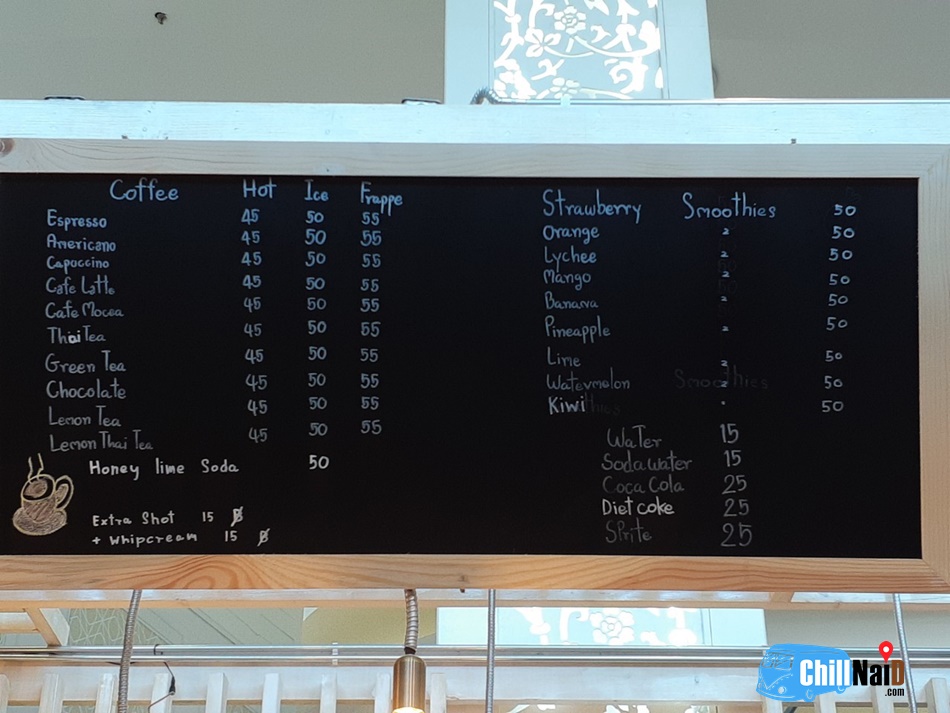 Coffee Hot Ice Frappe
Espresso 45 50 55
Americano 45 50 55
Capuccino 45 50 55
Cafe Latte 45 50 55
Cafe Mocca 45 50 55
Thai Tea 45 50 55
Green Tea 45 50 55
Chocolate 45 50 55
Lemon Tea 45 50 55
Lemon Thai Tea 45 50 55
Honey lime Soda 50
Extra Shot 15 ฿
+ Whipcream 15 ฿
Strawberry Smoothies 50
Orange " 50
Lychee " 50
Mango " 50
Banana " 50
Pineapple " 50
Lime " 50
Watermelon " 50
Kiwi " 50
Water 15
Soda water 15
Coca Cola 25
Diet coke 25
Sprite 25
ChillNaiD
.com